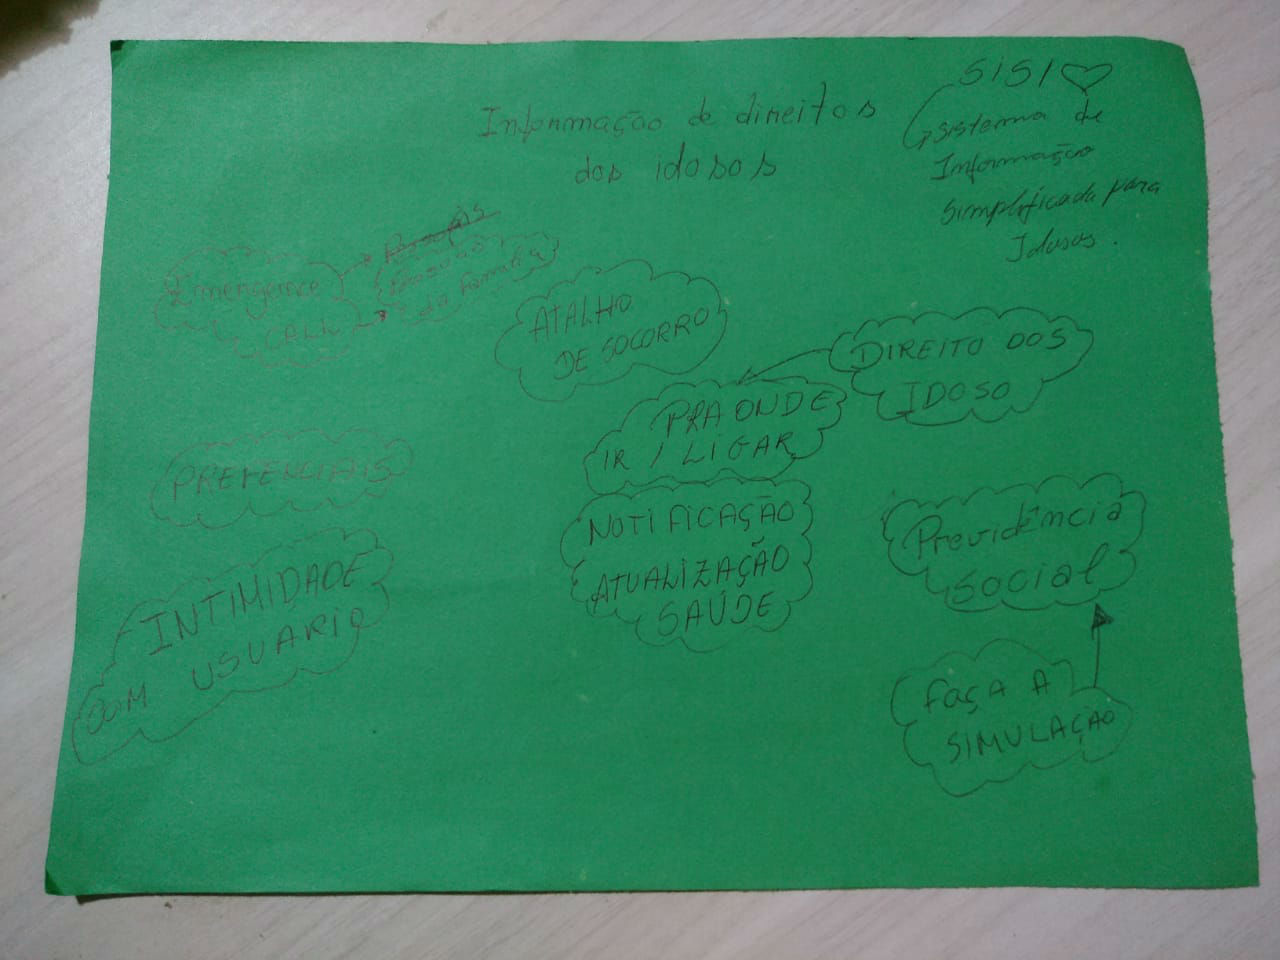 Informação de direitos
dos idosos
SISI
Sistema de
Informação
Simplificada para
Idosos.
Emengerece
CALL
Pessoais
da família
ATALHO
DE SOCORRO
DIREITO DOS
IDOSO
PRA ONDE
IR / LIGAR
PREFENCIAIS
NOTIFICAÇÃO
ATUALIZAÇÃO
SAÚDE
Previdência
Social
INTIMIDADE
COM USUARIO
FAÇA A
SIMULAÇÃO